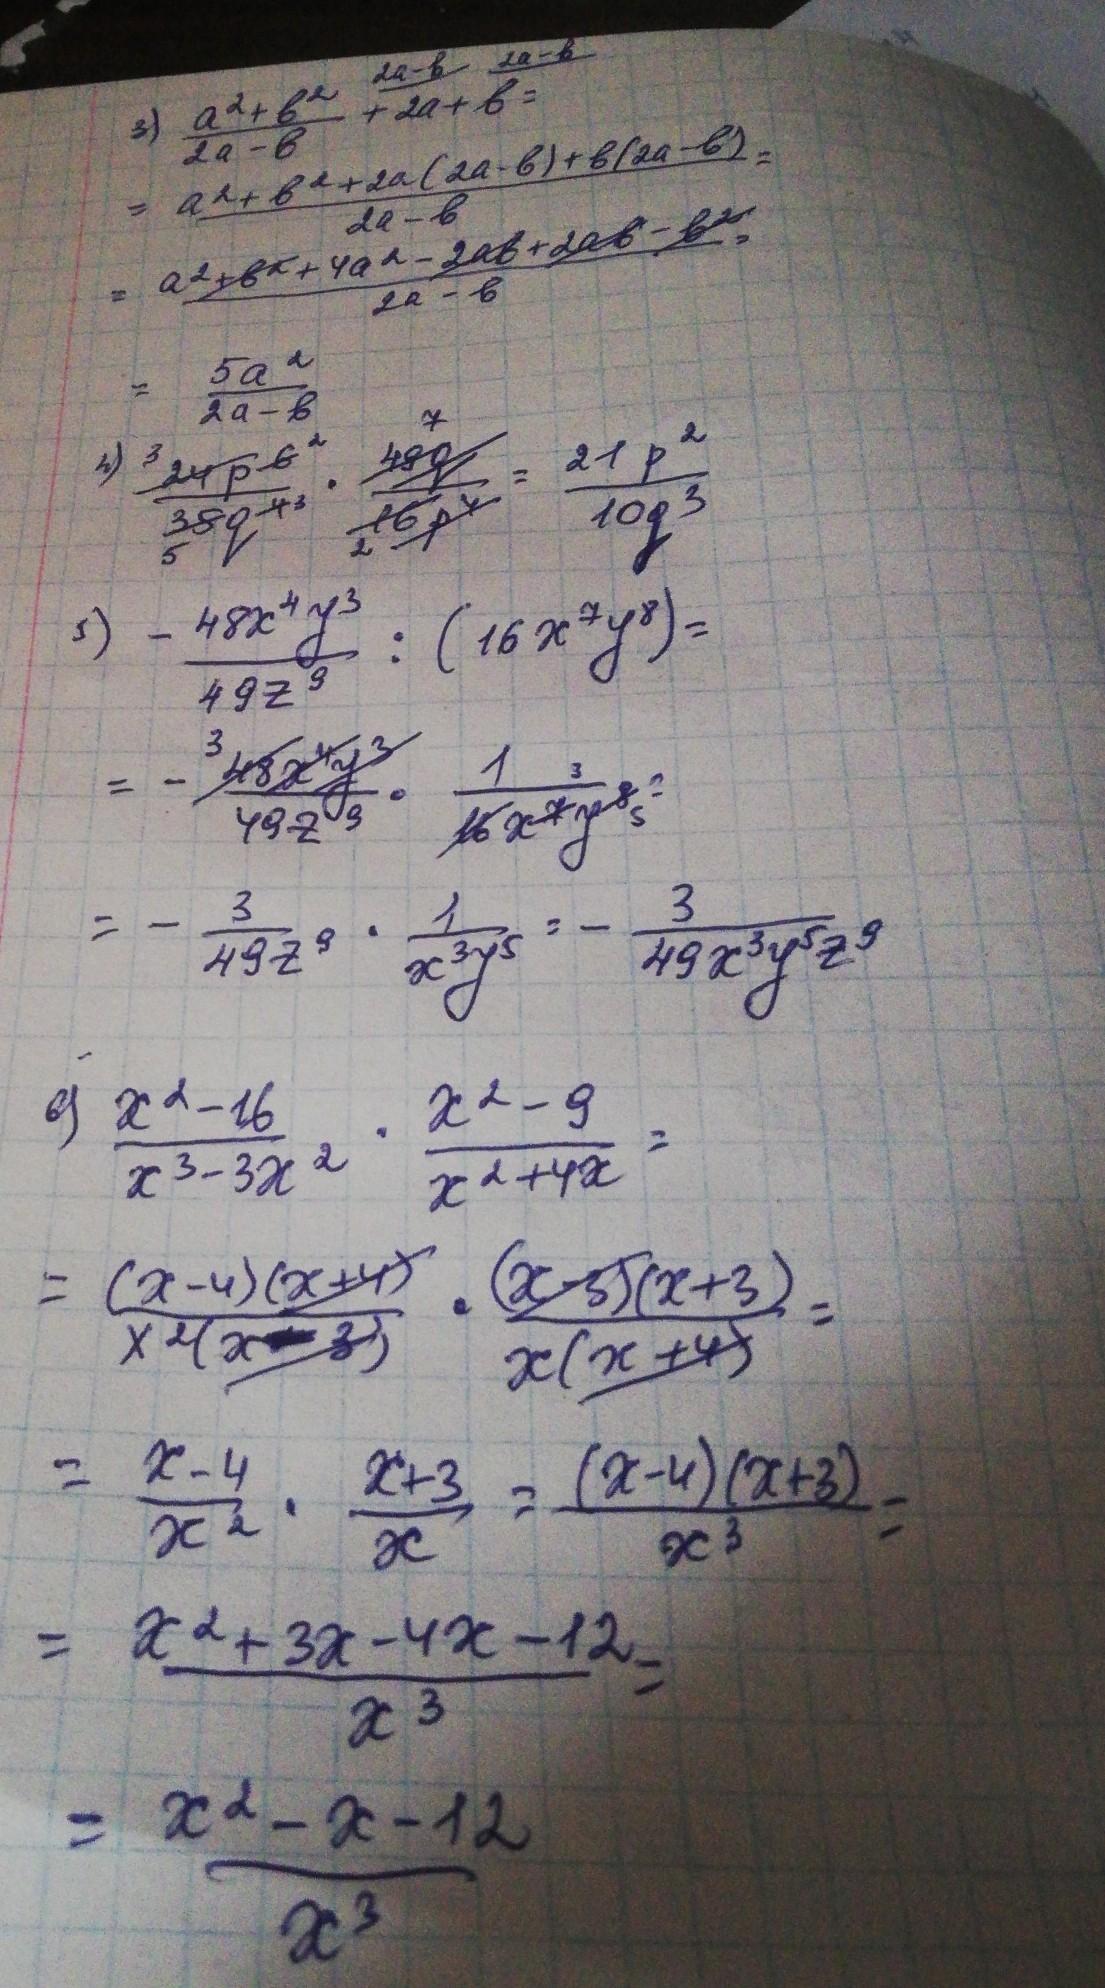 3) (a² + b²)/(2a - b) + 2a + b =
2a-b 2a-b
= (a² + b² + 2a(2a-b) + b(2a-b))/(2a-b) =
= (a² + b² + 4a² - 2ab + 2ab - b²)/(2a-b) =
= 5a²/(2a-b)
4) 24p⁶/35q⁴ · 49q/16p⁴ = 21p²/10q³
5) - 48x⁴y³/49z⁹ : (16x⁷y⁸) =
= - 48x⁴y³/49z⁹ · 1/16x⁷y⁸ =
= - 3/49z⁹ · 1/x³y⁵ = - 3/49x³y⁵z⁹
6) (x² - 16)/(x³ - 3x²) · (x² - 9)/(x² + 4x) =
= (x-4)(x+4)/x²(x-3) · (x-3)(x+3)/x(x+4) =
= (x-4)/x² · (x+3)/x = (x-4)(x+3)/x³ =
= (x² + 3x - 4x - 12)/x³ =
= (x² - x - 12)/x³